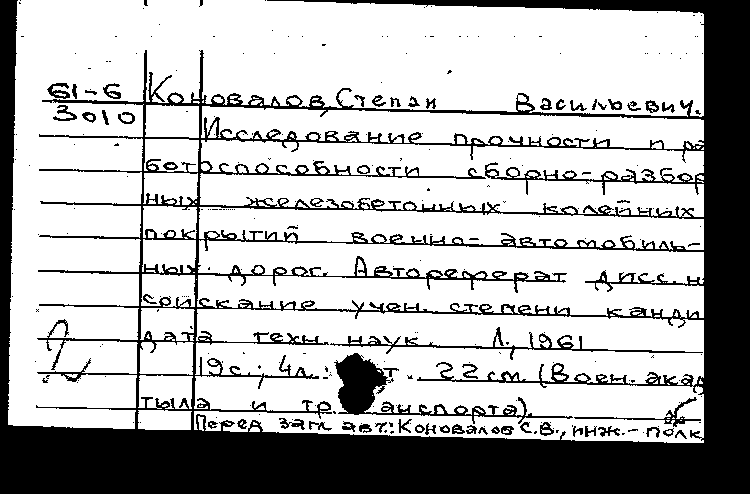 61-6 Коновалов, Степан Васильевич.
3010
Исследование прочности и ра
ботоспособности сборно-разбор
ных железобетонных колейных
покрытий военно-автомобиль-
ных дорог. Автореферат дисс. н
соискание учен. степени канди
дата техн. наук. Л., 1961
19 с.; 4 л.: т. 22 см. (Воен. акад
тыла и транспорта).
Перед загл. авт.: Коновалов С.В., инж.-полк